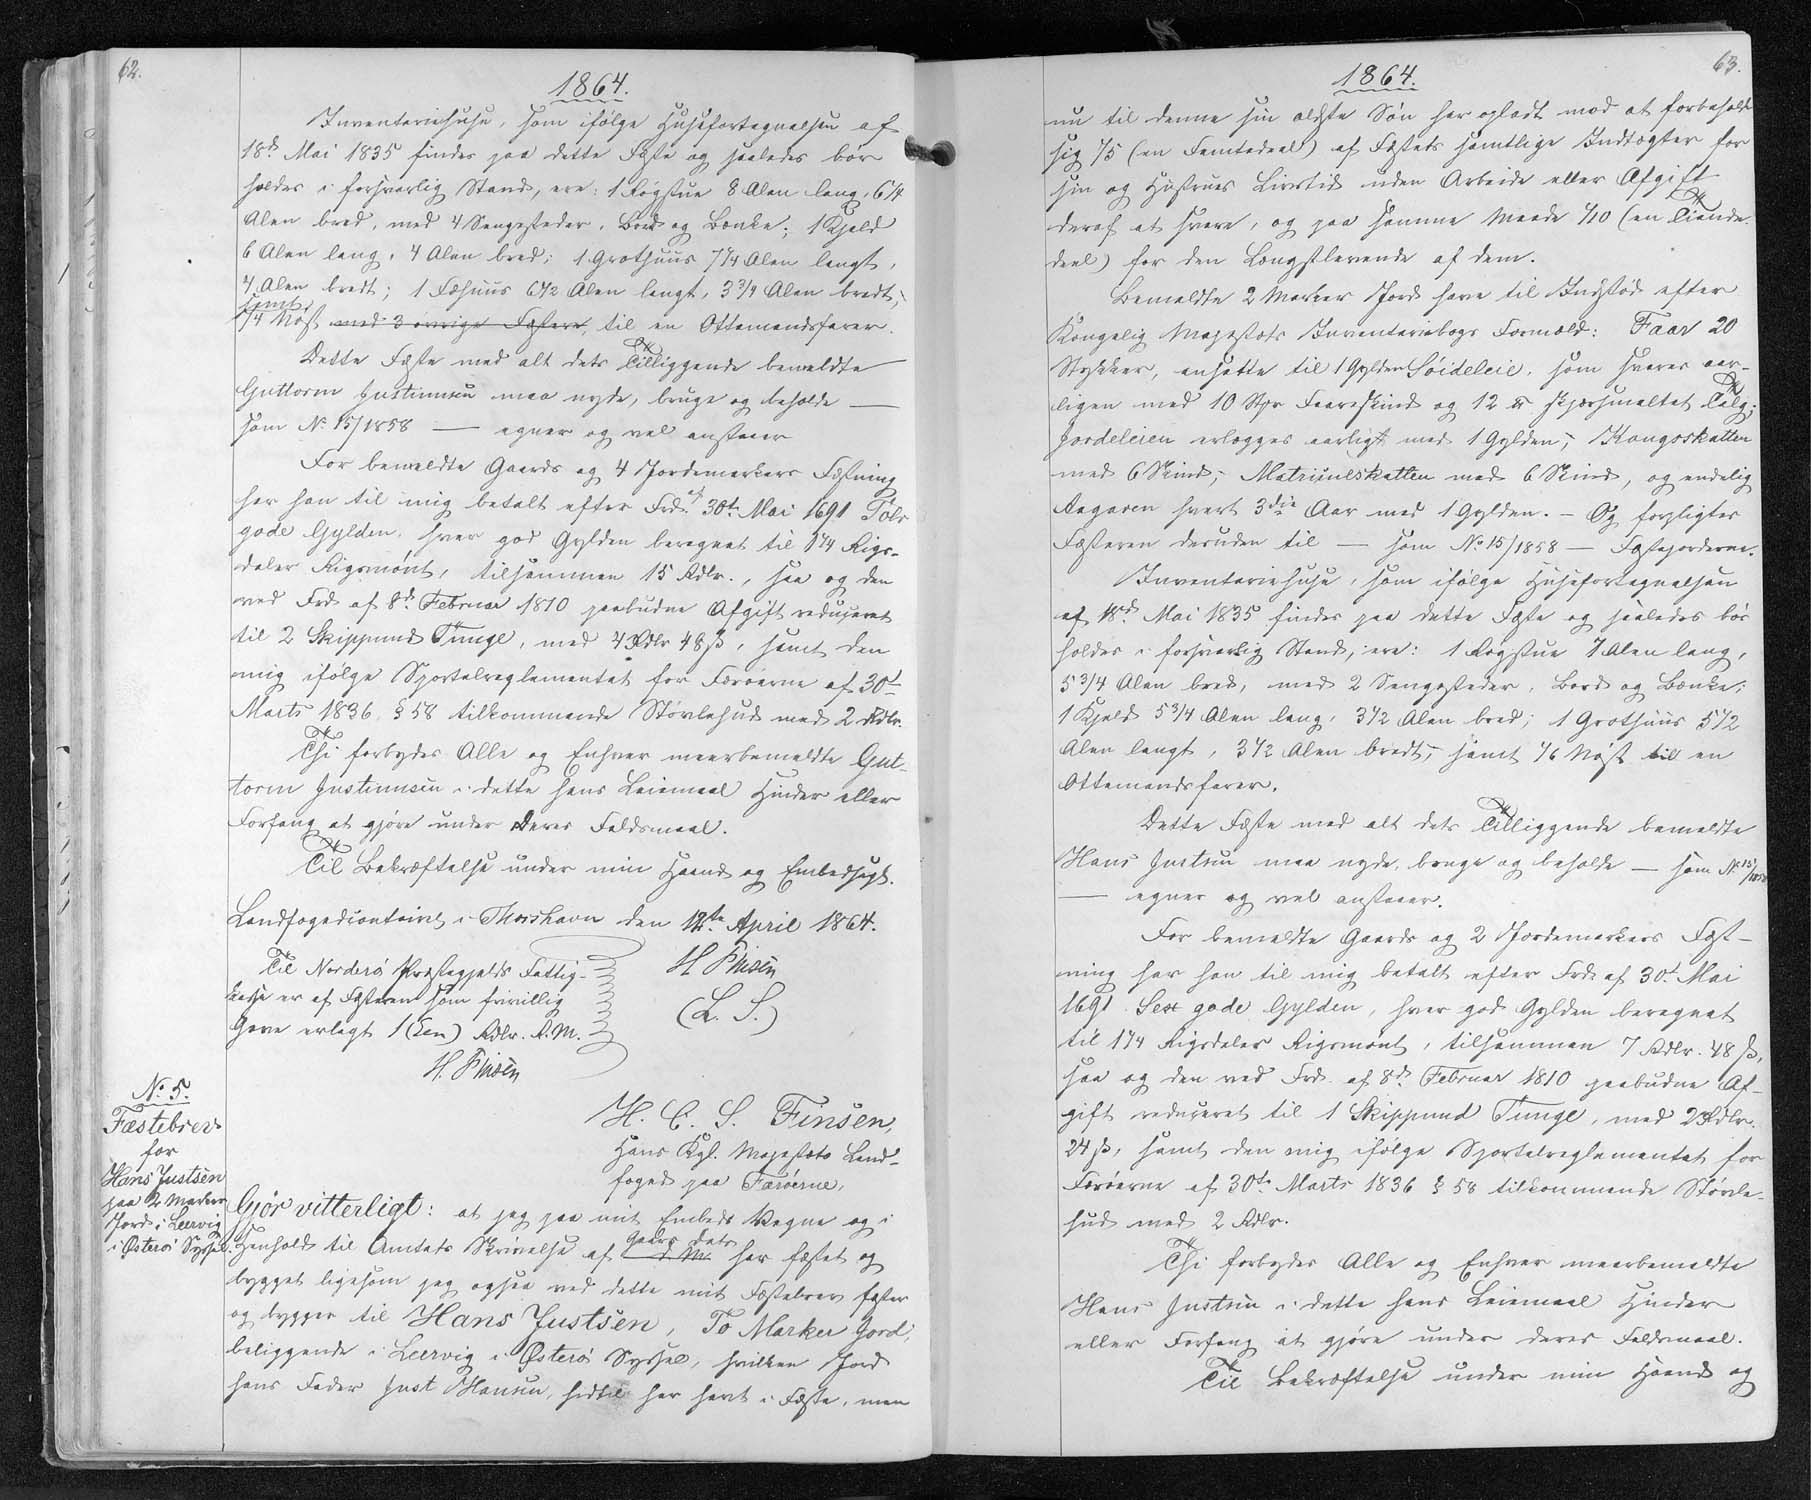 62.
1864.
Inventariehuse, som ifølge Husefortegnelsen af
18d Mai 1835 findes paa dette Fæste og saaledes bør
holdes i forsvarlig Stand, ere: 1 Røgstue 8 Alen lang, 6 1/4
Alen bred, med 4 Sengesteder, Bord og Bænke; 1 Kjeld
6 Alen lang, 4 Alen bred; 1 Grothuus 7 1/4 Alen langt,
4 Alen bredt; 1 Fæhuus 6 1/2 Alen langt, 3 3/4 Alen bredt;
samt
1/4 Nøst med 3 øvrige Fæstere, til en Ottemandsfarer.
Dette Fæste med alt dets Tilliggende bemeldte
Guttorm Justinussen maa nyde, bruge og beholde —
som No 15/1858 — egner og vel anstaaer
For bemeldte Gaards og 4 Jordemarkers Fæstning
har han til mig betalt efter Frd. af 30te Mai 1691 Tolv
gode Gylden, hver god Gylden beregnet til 1 1/4 Rigs-
daler Rigsmønt, tilsammen 15 Rdlr., saa og den
ved Frd. af 8d Februar 1810 paabudne Afgift reduceret
til 2 Skippund Tunge, med 4 Rdlr 48 ß, samt den
mig ifølge Sportelreglementet for Færøerne af 30te
Marts 1836, § 58 tilkommende Støvlehud med 2 Rdlr.
Thi forbydes Alle og Enhver meerbemeldte Gut-
torm Justinussen i dette hans Leiemaal Hinder eller
Forfang at gjøre under Deres Faldsmaal.
Til Bekræftelse under min Haand og Embedssegl.
Landfogedcontoiret i Thorshavn den 12te April 1864.
H Finsen
(L. S.)
Til Norderø Præstegjelds Fattig-
kasse er af Fæsteren som frivillig
Gave erlagt 1 (Een) Rdlr. R. M.
H. Finsen
No 5.
Fæstebrev
for
Hans Justsen
paa 2 Marker
Jord i Leervig
i Østerø Syssel.
H. C. S. Finsen,
Hans Kgl. Majestæts Land-
foged paa Færøerne,
Gjør vitterligt: at jeg paa mit Embeds Vegne og i
Henhold til Amtets Skrivelse af d. M. har fæstet og
bygget ligesom jeg ogsaa ved dette mit Fæstebrev fæster
og bygger til Hans Justsen, To Marker Jord,
beliggende i Leervig i Østerø Syssel, hvilken Jord
hans Fader Just Hansen, hidtil har havt i Fæste, men
63.
1864.
nu til denne sin ældste Søn har opladt mod at forbeholde
sig 1/5 (en Femtedeel) af Fæstets samtlige Indtægter for
sin og Hustrues Livstid uden Arbeide eller Afgift
deraf at svare, og paa samme Maade 1/10 (en Tiende-
deel) for den Længstlevende af dem.
Bemeldte 2 Marker Jord have til Indstød efter
Kongelig Majestæts Inventariebogs Formeld: Faar 20
Stykker, ansatte til 1 Gylden Søideleie, som svares aar-
ligen med 10 Stkr Faareskind og 12 ℔ skjærsmeltet Talg;
Jordeleien erlægges aarligt med 1 Gylden; Kongsskatten
med 6 Skind; Matriculskatten med 6 Skind, og endelig
Aagaven hvert 3die Aar med 1 Gylden. — Og forpligtes
Fæsteren desuden til — som No 15/1858 — Fæstejorderne.
Inventariehuse, som ifølge Husefortegnelsen
af 18d Mai 1835 findes paa dette Fæste og saaledes bør
holdes i forsvarlig Stand, ere: 1 Røgstue 7 Alen lang,
5 3/4 Alen bred, med 2 Sengesteder, Bord og Bænke;
1 Kjeld 5 3/4 Alen lang, 3 1/2 Alen bred; 1 Grothuus 5 1/2
Alen langt, 3 1/2 Alen bredt, samt 1/6 Nøst til en
Ottemandsfarer.
Dette Fæste med alt dets Tilliggende bemeldte
Hans Justsen maa nyde, bruge og beholde — som No 15/1858
— egner og vel anstaaer.
For bemeldte Gaards og 2 Jordemarkers Fæst-
ning har han til mig betalt efter Frd. af 30te Mai
1691 Sex gode Gylden, hver god Gylden beregnet
til 1 1/4 Rigsdaler Rigsmønt, tilsammen 7 Rdlr. 48 ß,
saa og den ved Frd. af 8d Februar 1810 paabudne Af-
gift reduceret til 1 Skippund Tunge, med 2 Rdlr.
24 ß, samt den mig ifølge Sportelreglementet for
Færøerne af 30te Marts 1836 § 58 tilkommende Støvle-
hud med 2 Rdlr.
Thi forbydes Alle og Enhver meerbemeldte
Hans Justsen i dette hans Leiemaal Hinder
eller Forfang at gjøre under deres Faldsmaal.
Til Bekræftelse under min Haand og